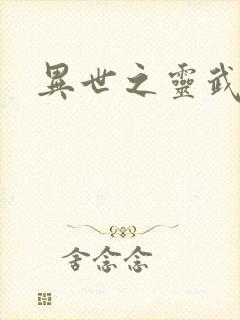 異世之靈武
舍念念